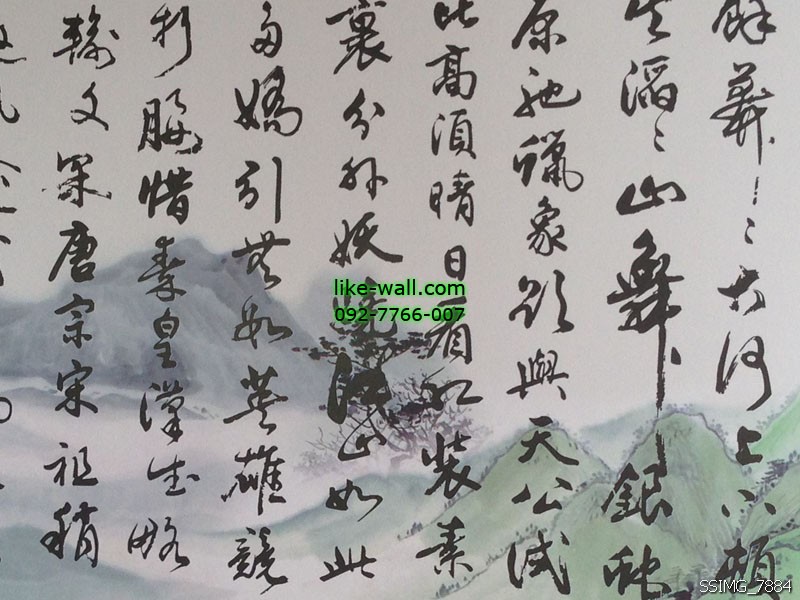 餘莽〻大河上下頓
失滔〻山舞銀蛇
原馳蠟象欲與天公試
比高須晴日看紅裝素
裹分外妖嬈江山如此
多嬌引無數英雄競
折腰惜秦皇漢武略
輸文采唐宗宋祖稍
like-wall.com
092-7766-007
SSIMG_7884